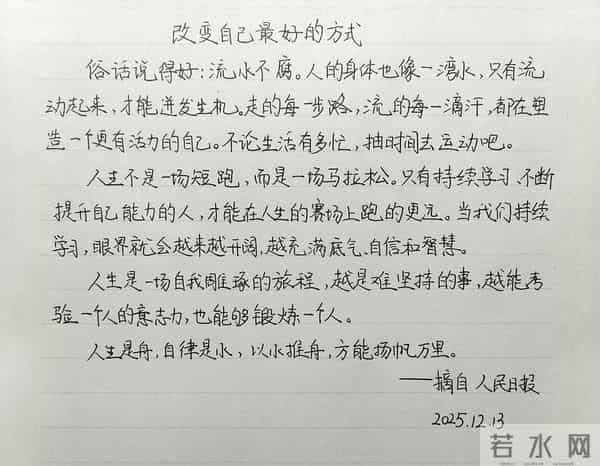 改变自己最好的方式
俗话说得好:流水不腐。人的身体也像一湾水,只有流
动起来,才能迸发生机。走的每一步路,流的每一滴汗,都在塑
造一个更有活力的自己。不论生活有多忙,抽时间去运动吧。
人生不是一场短跑,而是一场马拉松。只有持续学习、不断
提升自己能力的人,才能在人生的赛场上跑的更远。当我们持续
学习,眼界就会越来越开阔,越充满底气、自信和智慧。
人生是一场自我雕琢的旅程,越是难坚持的事,越能考
验一个人的意志力,也能够锻炼一个人。
人生是舟,自律是水,以水推舟,方能扬帆万里。
——摘自 人民日报
2025.12.13
若水网